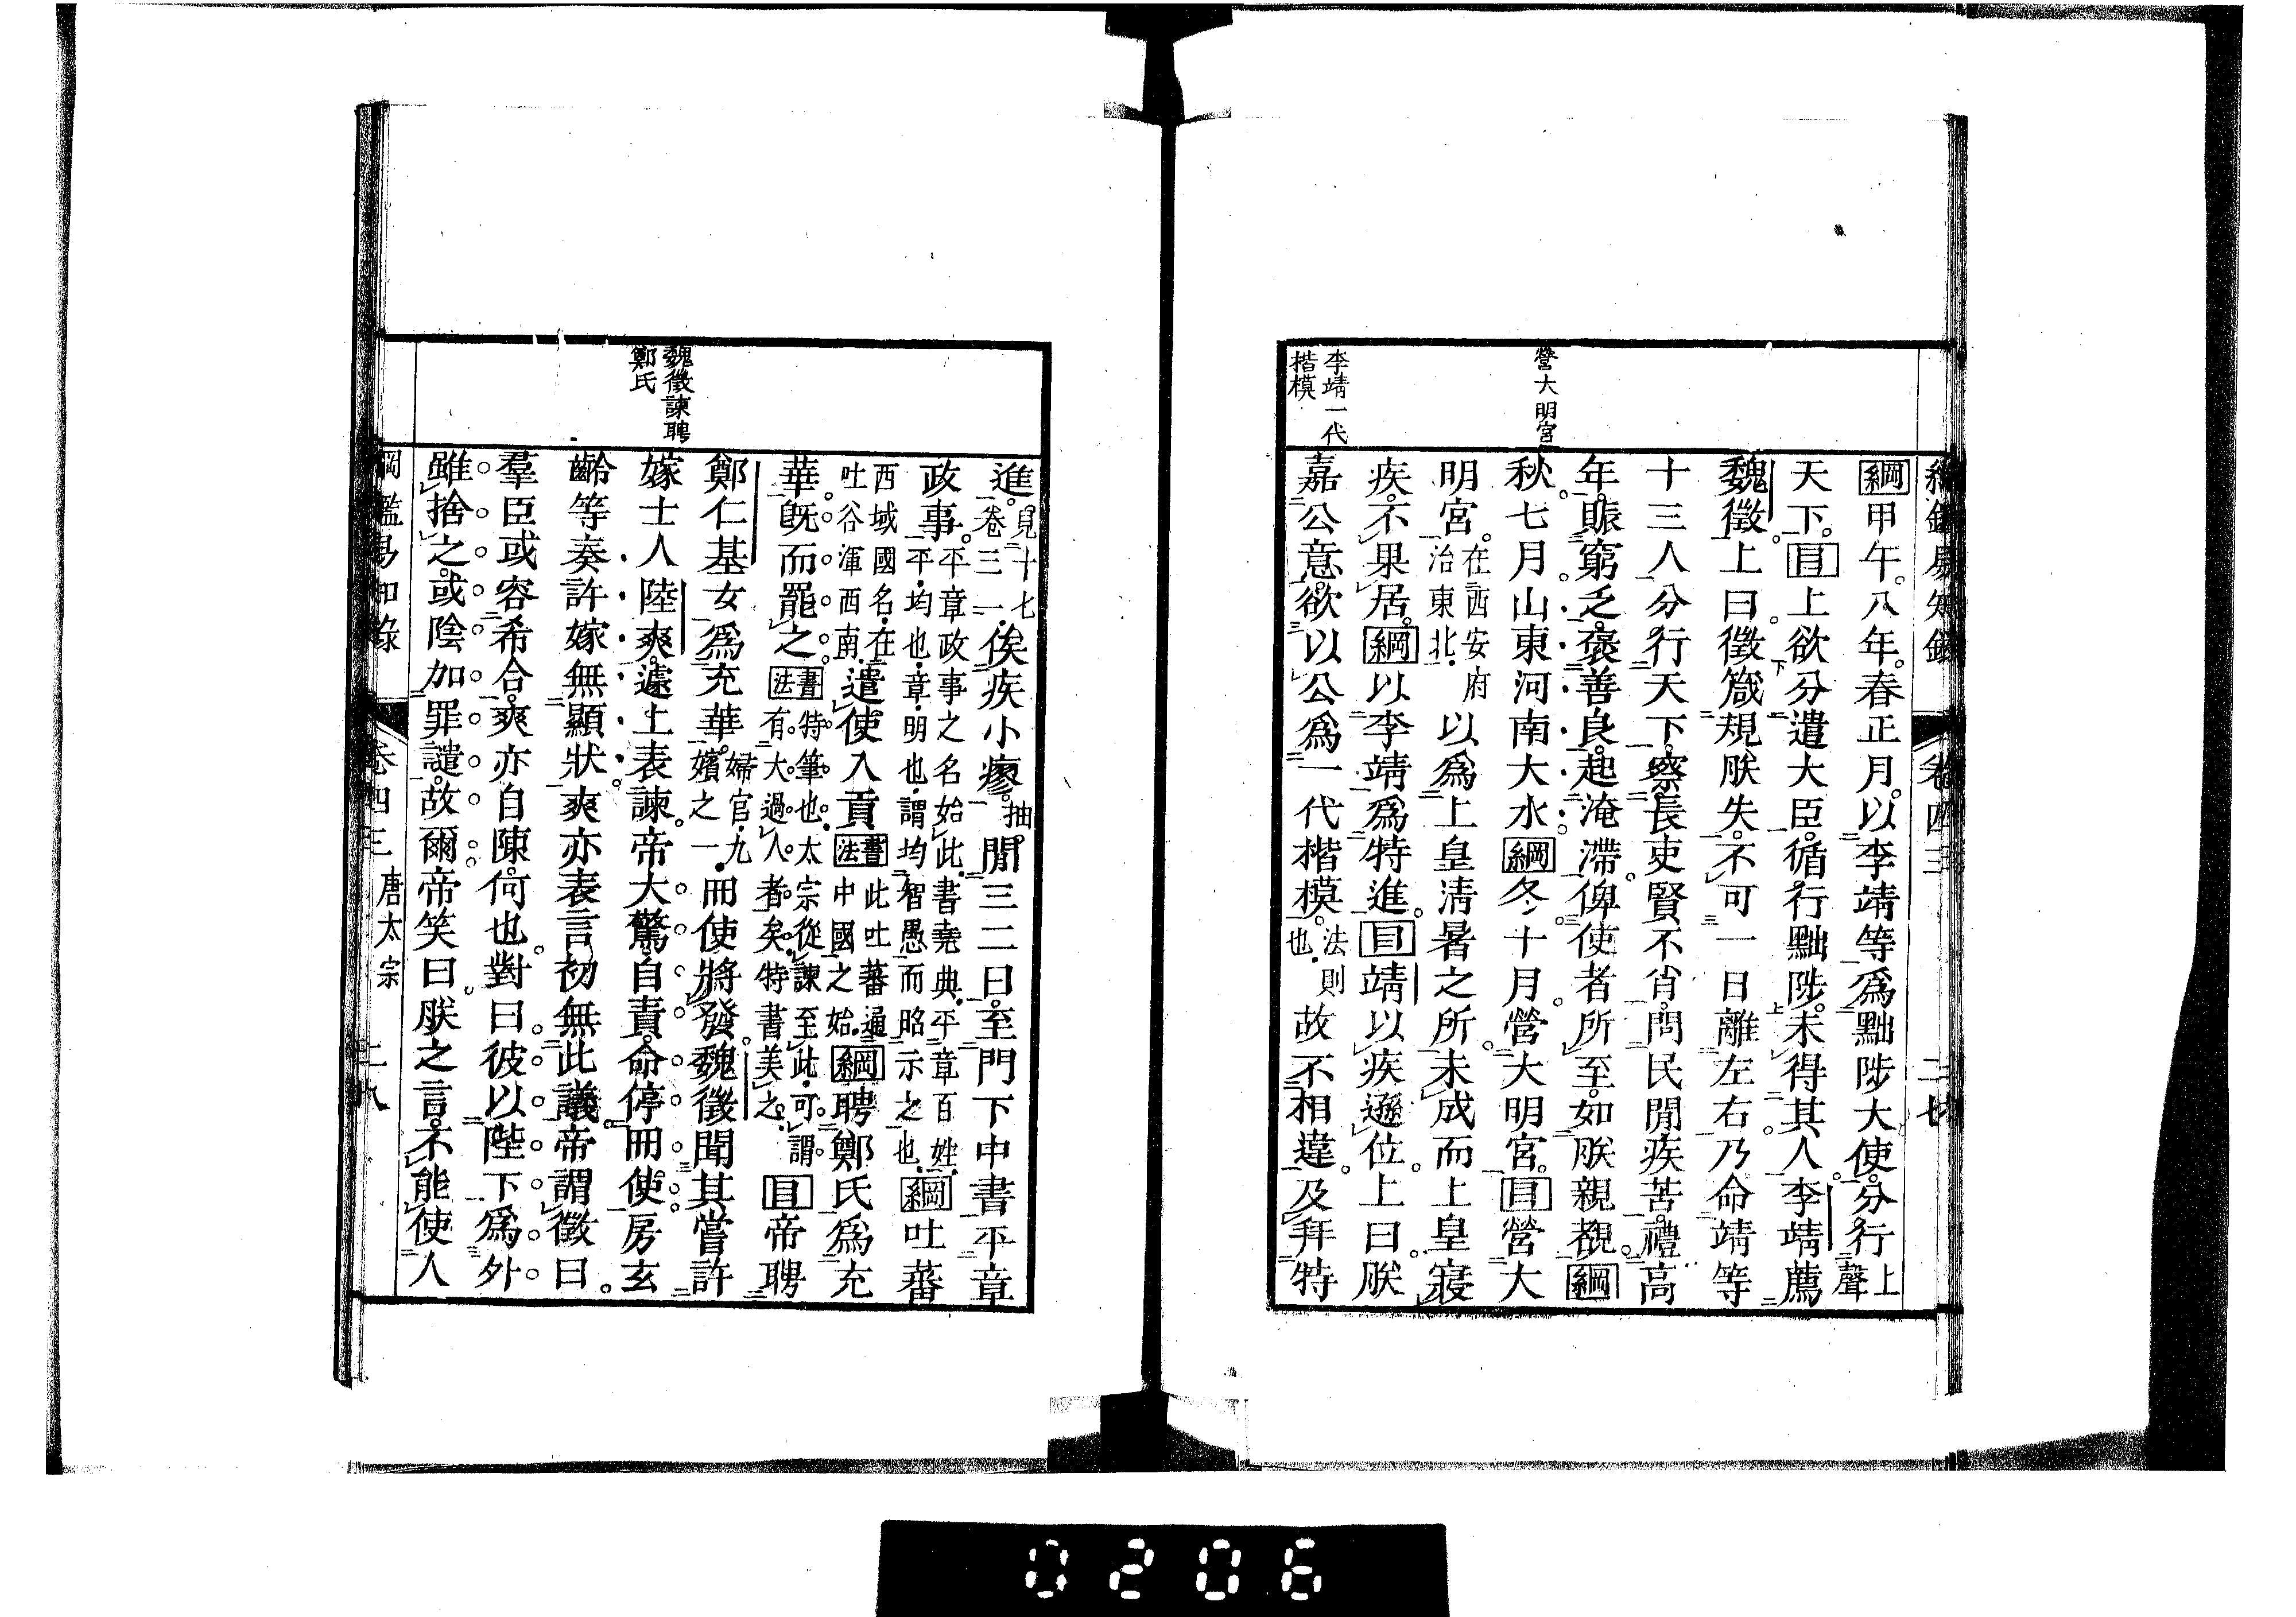 綱鑑易知錄 卷四三 二七
營大明宮
李靖一代
楷模
綱甲午八年春正月以李靖等爲黜陟大使分行上聲
天下目上欲分遣大臣循行黜陟未得其人李靖薦
魏徵上曰徵箴規朕失不可一日離左右乃命靖等
十三人分行天下察長吏賢不肖問民閒疾苦禮高
年賑窮乏褒善良起淹滯俾使者所至如朕親覩綱
秋七月山東河南大水綱冬十月營大明宮目營大
明宮在西安府治東北以爲上皇清暑之所未成而上皇寢
疾不果居綱以李靖爲特進目靖以疾遜位上曰朕
嘉公意欲以公爲一代楷模法則也故不相違及拜特
魏徵諫聘
鄭氏
進見十七卷三一俟疾小瘳抽閒三二日至門下中書平章
政事平章政事之名始此書堯典平章百姓平均也章明也謂均智愚而昭示之也綱吐蕃
西域國名在吐谷渾西南遣使入貢書法此吐蕃通中國之始綱聘鄭氏爲充
華既而罷之書法特筆也太宗從諫至此可謂有大過人者矣特書美之目帝聘
鄭仁基女爲充華婦官九嬪之一冊使將發魏徵聞其嘗許
嫁士人陸爽遽上表諫帝大驚自責命停冊使房玄
齡等奏許嫁無顯狀爽亦表言初無此議帝謂徵曰
羣臣或容希合爽亦自陳何也對曰彼以陛下爲外
雖捨之或陰加罪譴故爾帝笑曰朕之言不能使人
綱鑑易知錄 卷四三 唐太宗 二八
0206